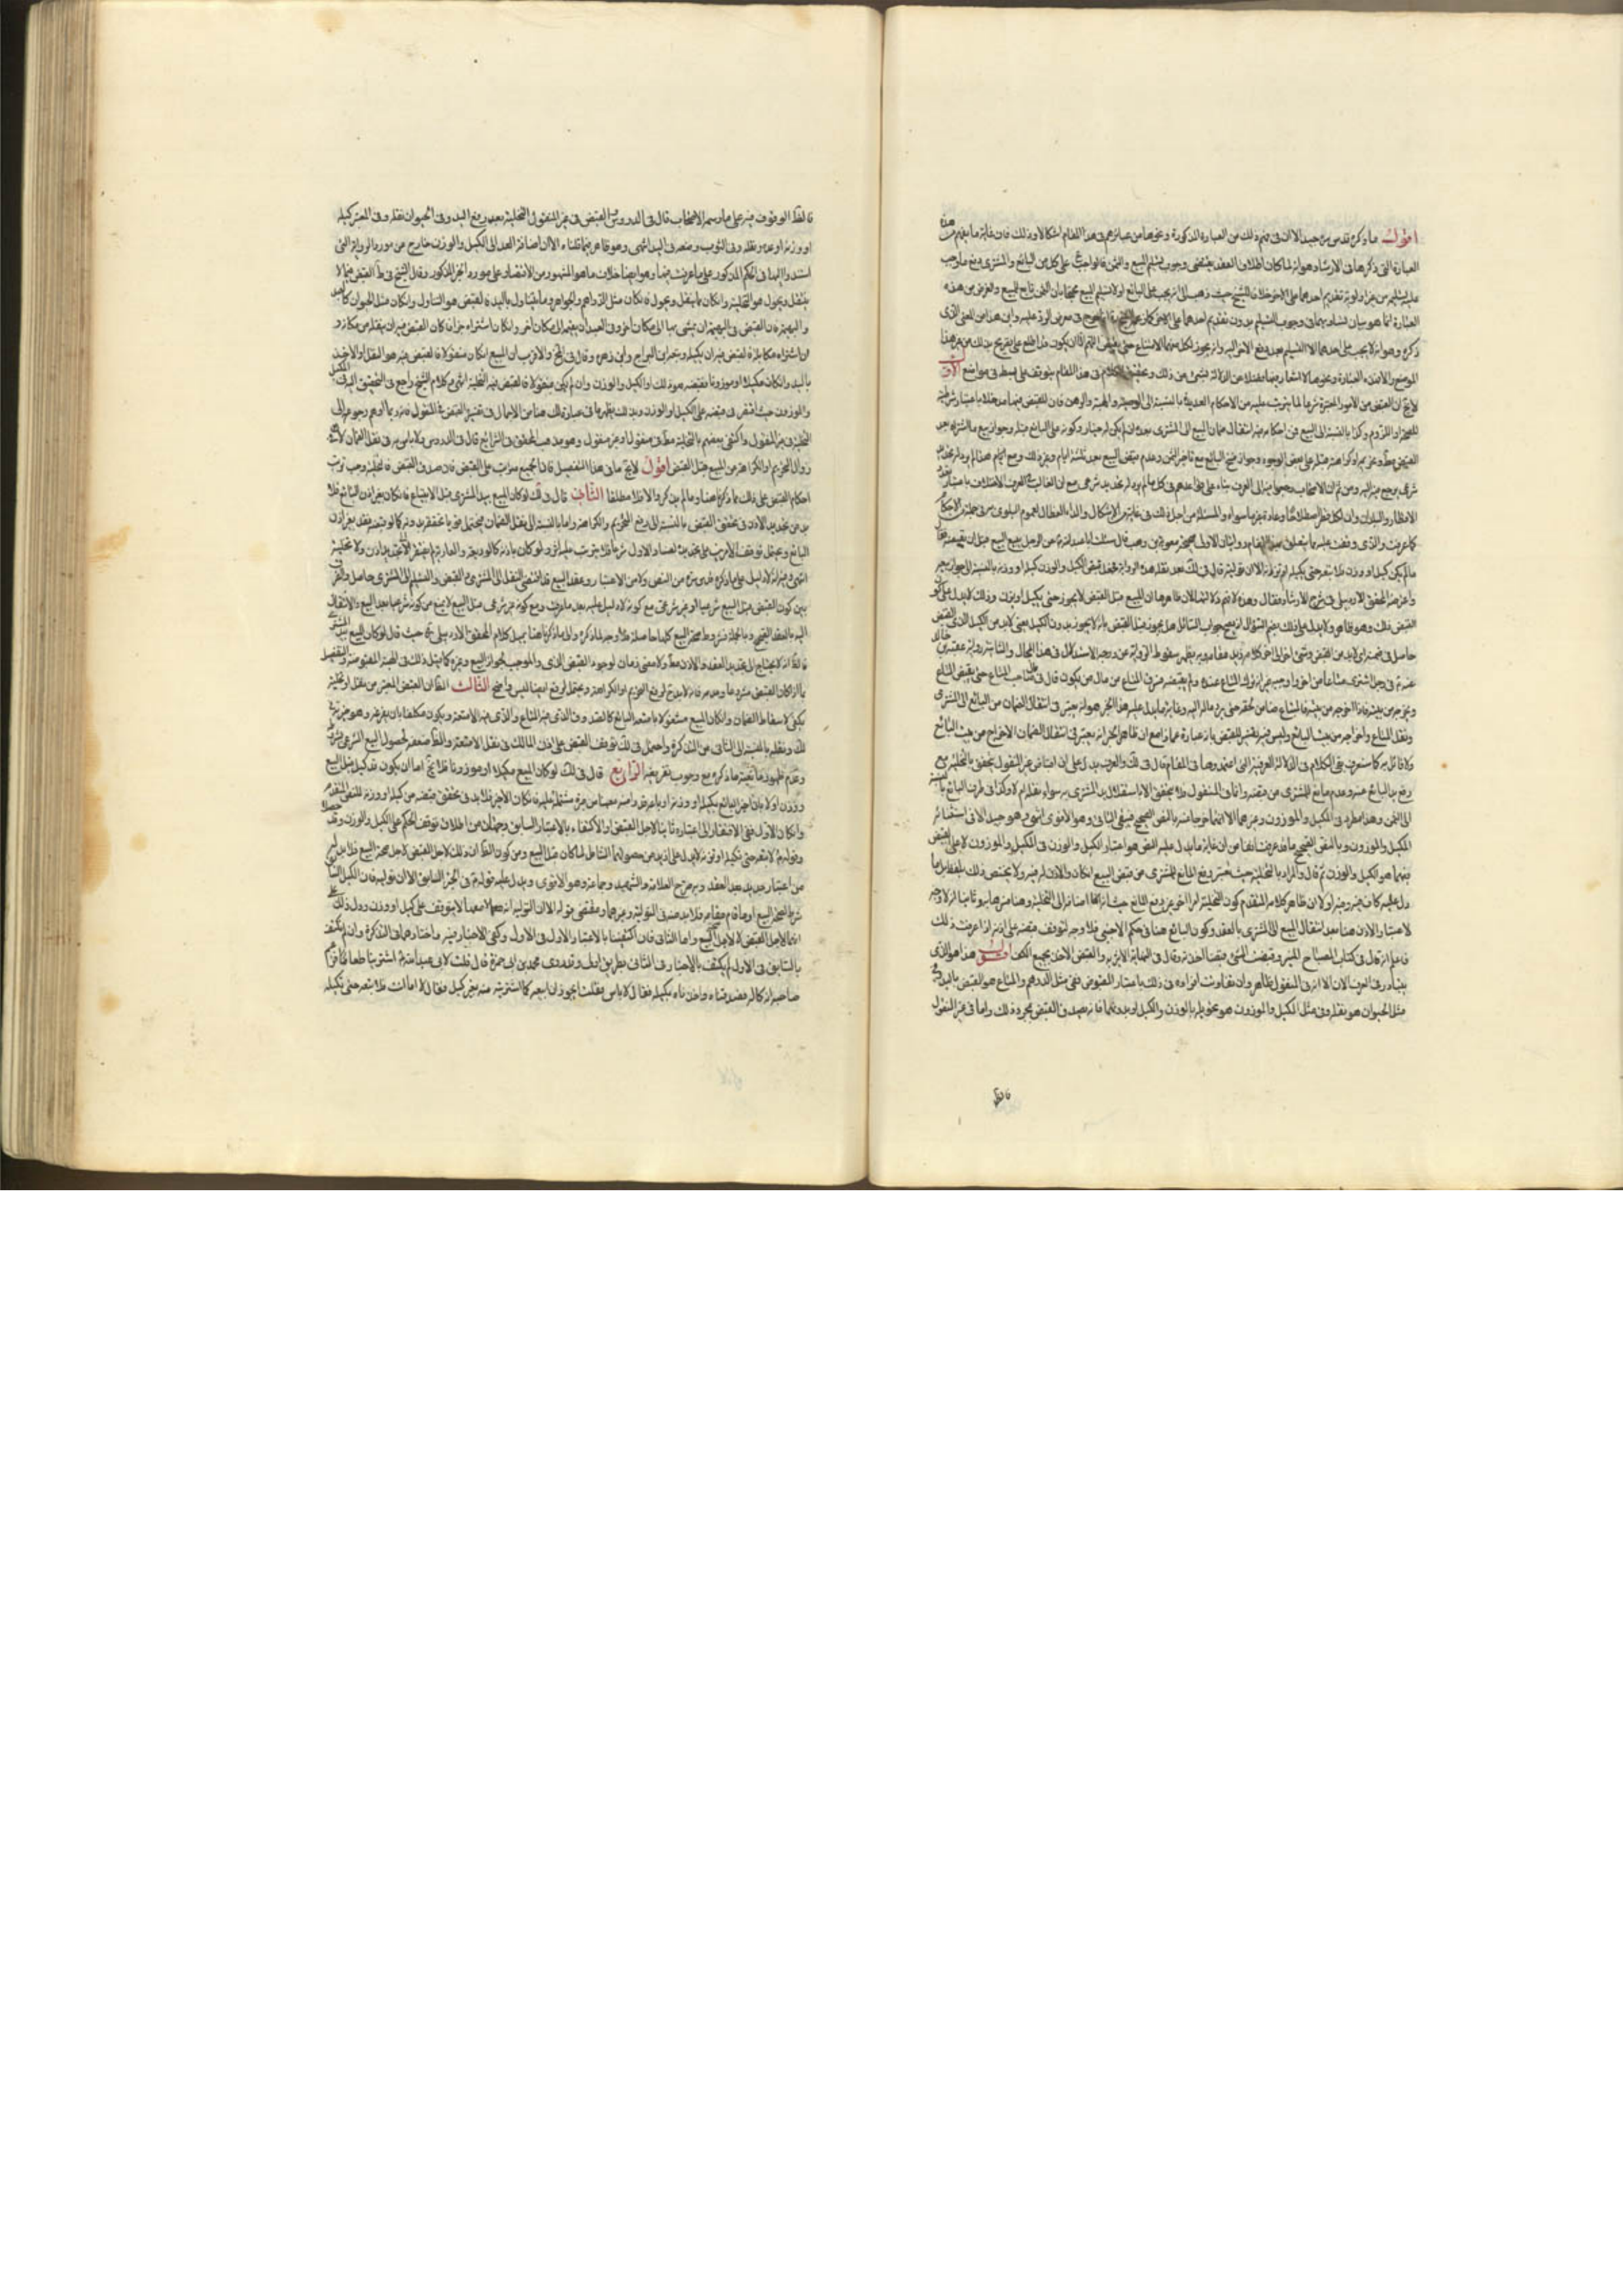 اقول ما ذكره قدس سره جيد الا ان فى فهم ذلك من العبارة المذكورة ونحوها من عبائرهم فى هذا المقام اشكالا وذلك فان غاية ما يفهم من هذه
العبارة التى ذكرها فى الارشاد هو انه لما كان اطلاق العقد يقتضى وجوب تسليم المبيع والثمن فالواجب على كل من البائع والمشترى دفع ما وجب
عليه تسليمه من غير اولوية تقديم احدهما على الاخر خلافا للشيخ حيث ذهب الى انه يجب على البائع اولا تسليم المبيع محتجا بان الثمن تابع للمبيع والغرض من هذه
العبارة انما هو بيان تساويهما فى وجوب التسليم بدون تقديم احدهما على الاخر
ذكره وهو انه لا يجب على احدهما الا التسليم بعد دفع الاخر اليه وانه يجوز لكل منهما الامتناع حتى
الموضع والا فهذه العبارة ونحوها لا اشعار فيها فضلا عن الدلالة بشئ من ذلك وتحقيق الكلام فى هذا المقام يتوقف على بسط فى مواضع الاول
لا يخفى ان القبض من الامور المعتبرة شرعا لما يترتب عليه من الاحكام العديدة بالنسبة الى الوصية والهبة والرهن فان للقبض فيها مدخلا باعتبار شرطيته
للصحة او اللزوم وكذا بالنسبة الى البيع فمن احكامه فيه انتقال ضمان المبيع الى المشترى بعده ان لم يكن له خيار وكونه على البائع قبله وجواز بيع ما اشتراه بعد
القبض مطلقا وتحريمه او كراهته قبله على بعض الوجوه وجواز فسخ البائع مع تاخير الثمن وعدم قبض المبيع بعد ثلثة ايام وغير ذلك ومع
شرعى يرجع فيه اليه ومن ثم ان الاصحاب رجعوا فيه الى العرف بناء على قواعدهم فى كل ما لم يرد له تحديد شرعى مع ان الغالب فى العرف الاختلاف باعتبار
الاقطار والبلدان وان لكل قطر اصطلاحا وعادة غير ما سواه والمسئلة من اجل ذلك فى غاية من الاشكال والداء العضال لعموم البلوى
كما عرفت والذى وقفت عليه مما يتعلق بهذا المقام روايتان الاولى صحيحة معوية بن وهب قال سئلت ابا عبد الله ع عن الرجل يبيع البيع قبل ان يقبضه فقال
ما لم يكن كيل او وزن فلا تبعه حتى تكيله او تزنه الا ان توليه قال فى لك بعد نقله هذه الرواية فجعل قبض الكيل والوزن كيله او وزنه بالنسبة الى جواز بيعه
واعترضه المحقق الاردبيلى فى شرح الارشاد فقال وهذه لا يتم دلالتها لان ظاهرها ان المبيع قبل القبض لا يجوز حتى يكيل او يوزن وذلك لا يدل على كون
القبض ذلك وهو ظاهر ولا يدل على ذلك بضم السؤال اذ يصح جواب السائل هل يجوز قبل القبض بانه لا يجوز بدون الكيل يعنى لا بد من الكيل الذى القبض
حاصل فى ضمنه اى لابد من القبض وشئ اخر الى اخر كلامه زيد مقامه وبه يظهر سقوط الرواية عن درجة الاستدلال فى هذا المجال والثانية رواية عقبة بن خالد
عنه ع فى رجل اشترى متاعا من اخر واوجبه غير انه ترك المتاع عنده ولم يقبضه فسرق المتاع من مال من يكون قال فى مال صاحب المتاع حتى يقبض المتاع
ويخرجه من بيته فاذا اخرجه من بيته فالمبتاع ضامن لحقه حتى يرد ماله اليه وغاية ما يدل عليه هذا الخبر هو انه يعتبر فى انتقال الضمان من البائع الى المشترى
ونقل المتاع واخراجه من بيت البائع وليس فيه تفسير للقبض بانه عبارة عما ذا مع ان ظاهر الخبر انه يعتبر فى انتقال الضمان الاخراج من بيت البائع
ولا قائل به كما ستعرف بقى الكلام فى الدلالة العرفية التى اعتمدوها فى المقام قال فى لك والعرف يدل على ان اقباض غير المنقول يتحقق بالتخلية مع
رفع يد البائع عنه وعدم مانع للمشترى من قبضه واما فى المنقول فلا يتحقق الا باستقلال يد المشترى به سواء نقله ام لا وكذا فى طرف البائع بالنسبة
الى الثمن وهذا مطرد فى المكيل والموزون وغيرهما الا انهما خرجا عنه بالنص الصحيح فيبقى الباقى وهو الاقوى انتهى وهو جيد الا فى استثنائه
المكيل والموزون وبالنص الصحيح ما قد عرفت انفا من ان غاية ما يدل عليه النص هو اعتبار الكيل والوزن فى المكيل والموزون لا على ان القبض
فيهما هو الكيل والوزن ثم قال والمراد بالتخلية حيث تعتبر رفع المانع للمشترى من قبض المبيع ان كان والاذن له فيه ولا يختص ذلك بلفظ بل كلما
دل عليه كاف فيه وفيه اولا ان ظاهر كلامه المتقدم كون التخلية امرا اخر غير رفع المانع حيث انه
لاعتبار الاذن هنا بعد انتقال المبيع الى المشترى بالعقد وكون البائع هنا فى حكم الاجنبى فلا وجه لتوقف قبضه على اذنه اذا عرفت ذلك
فاعلم انه قال فى كتاب المصباح المنير وقبضت الشئ قبضا اخذته وقال فى النهاية الاثيرية والقبض الاخذ بجميع الكف اقول هذا هو الذى
يتبادر فى العرف الان الا انه فى المنقول ظاهر وان تفاوتت افراده فى ذلك باعتبار المقبوض ففى مثل الدرهم والمتاع هو القبض باليد وفى
مثل الحيوان هو نقله وفى مثل المكيل والموزون هو تحويله بالوزن والكيل او بدونهما فانه يصدق القبض بمجرد ذلك واما فى غير المنقول
فالظ
فالظ الوقوف فيه على ما رسمه الاصحاب قال فى الدروس القبض فى غير المنقول التخلية بعد رفع اليد وفى الحيوان نقله وفى المعتبر كيله
او وزنه او عده ونقله وفى الثوب وضعه فى اليد انتهى وهو ظاهر فيما قلناه الا ان اضافة العد الى الكيل والوزن خارج عن مورد الرواية التى
استند اليها فى الحكم المذكور على ما عرفت فيها وهو ايضا خلاف ما هو المشهور من الاقتصار على مورد الخبر المذكور وقال الشيخ فى ط القبض فيما لا
ينقل ويحول هو التخلية وان كان مما ينقل ويحول فان كان مثل الدراهم والجواهر وما يتناول باليد فالقبض هو التناول وان كان مثل الحيوان كالعبد
والبهيمة فان القبض فى البهيمة ان يمشى بها الى مكان اخر وفى العبد ان يقيمه الى مكان اخر وان كان اشتراه جزافا كان القبض فيه ان ينقله من مكانه و
ان اشتراه مكايلة فالقبض فيه ان يكيله وتبعه ابن البراج وابن زهرة وقال فى المخ والاقرب ان المبيع ان كان منقولا فالقبض فيه هو النقل او الاخذ
باليد وان كان مكيلا او موزونا فقبضه هو ذلك او الكيل والوزن وان لم يكن منقولا فالقبض فيه التخلية انتهى وكلام الشيخ راجع فى التحقيق اليه فى المكيل
والموزون حيث اقتصر فى قبضه على الكيل او الوزن
التخلية فى غير المنقول واكتفى بعضهم بالتخلية مطلقا فى منقول او غير منقول وهو مذهب المحقق فى الشرايع قال فى الدروس ولا باس به فى نقل الضمان لا فى
زوال التحريم او الكراهة عن البيع قبل القبض اقول لا يخفى ما فى هذا التفصيل فان الجميع مترتب على القبض فان صدق القبض فالتخلية وجب ترتب
احكام القبض على ذلك مما ذكره هنا وما لم يذكره والا فلا مطلقا الثانى قال فى لك لو كان المبيع بيد المشترى قبل الابتياع فان كان بغير اذن البائع فلا
بد من تجديد الاذن فى تحقق القبض بالنسبة الى رفع التحريم والكراهة واما بالنسبة الى نقل الضمان فيحتمل
البائع ويحتمل توقف الامرين على تجديده لفساد الاول شرعا فلا يترتب عليه اثر ولو كان باذنه كالوديعة والعارية لم يفتقر الى تجديد اذن ولا تخلية
انتهى وفيه انه لا دليل على ما ذكره قدس سره من النص ولا من الاعتبار وعقد البيع قد اقتضى النقل الى المشترى والقبض والتسليم الى المشترى حاصل والفرق
بين كون القبض قبل البيع شرعيا او غير شرعى مع كونه لا دليل عليه بعد ما عرفت ومع كونه غير شرعى قبل البيع لا يمنع من كونه شرعيا بعد البيع والانتقال
اليه بالعقد الصحيح وبالجملة فشروط صحة البيع كلها حاصلة فلا وجه لما ذكره والى ما ذكرنا هنا يميل كلام المحقق الاردبيلى ره حيث قال لو كان المبيع بيد المشترى
فالظ انه لا يحتاج الى تجديد العقد والاذن مطلقا ولا مضى زمان لوجود القبض الذى والموجب لجواز البيع وغيره كما قيل ذلك فى الهبة المقبوضة والتفصيل
بما اذا كان القبض مشروعا وعدمه فانه لا بد حينئذ لرفع التحريم او الكراهة ويحتمل لرفع ايضا ليس واضح الثالث الظ ان القبض المعتبر من نقل او تخلية
يكفى لاسقاط الضمان وان كان المبيع مشغولا بامتعة البائع كالصندوق الذى فيه المتاع والدار التى فيها الامتعة ويكون مكلفا بان يفرغه وهو خيرة
لك ونقله بالنسبة الى الثانى عن التذكرة واحتمل فى لك توقف القبض على اذن المالك فى نقل الامتعة والظ ضعفه لحصول البيع الشرعى بشرائطه
وعدم ظهور مانعية ما ذكره مع وجوب تفريغه الرابع قال فى لك لو كان المبيع مكيلا او موزونا فلا يخ اما ان يكون قد كيل قبل البيع
ووزن اولا بان اخبر البائع بكيله او وزنه او باعه قدرا منه معينا من صبرة مشتملة عليه فان كان الاخير فلا بد فى تحقق قبضه من كيله او وزنه للنص المتقدم
وان كان الاول ففى الافتقار الى اعتباره ثانيا لاجل القبض والاكتفاء بالاعتبار السابق وجهان من اطلاق توقف الحكم على الكيل والوزن وقد حصلا
وقوله ع لا تبعه حتى تكيله او تزنه لا يدل على ازيد من حصولهما الشامل لما كان قبل البيع ومن كون الظ ان ذلك لاجل القبض لا لاجل صحة البيع فلا بد له
من اعتبار جديد بعد العقد وبه صرح العلامة والشهيد وجماعة وهو الاقوى ويدل عليه قوله ع فى الخبر السابق الا ان توليه فان الكيل السابق
شرط لصحة البيع او ما قام مقامه فلا بد منه فى التولية وغيرها ومقتضى قوله الا ان التولية انه معها لا يتوقف على كيل او وزن فدل ذلك على
انهما لاجل القبض لا لاجل البيع واما الثانى فان اكتفينا بالاعتبار الاول فى الاول وكفى الاخبار فيه واختاره فى التذكرة وان لم نكتف
بالسابق فى الاول لم يكتف بالاخبار فى الثانى بطريق اولى وقد روى محمد بن ابى حمزة قال قلت لابى عبد الله ع اشترينا طعاما فزعم
صاحبه انه كاله فصدقناه واخذناه بكيله فقال لا باس فقلت ايجوز ان ابيعه كما اشتريته منه بغير كيل فقال لا اما انت فلا تبعه حتى تكيله